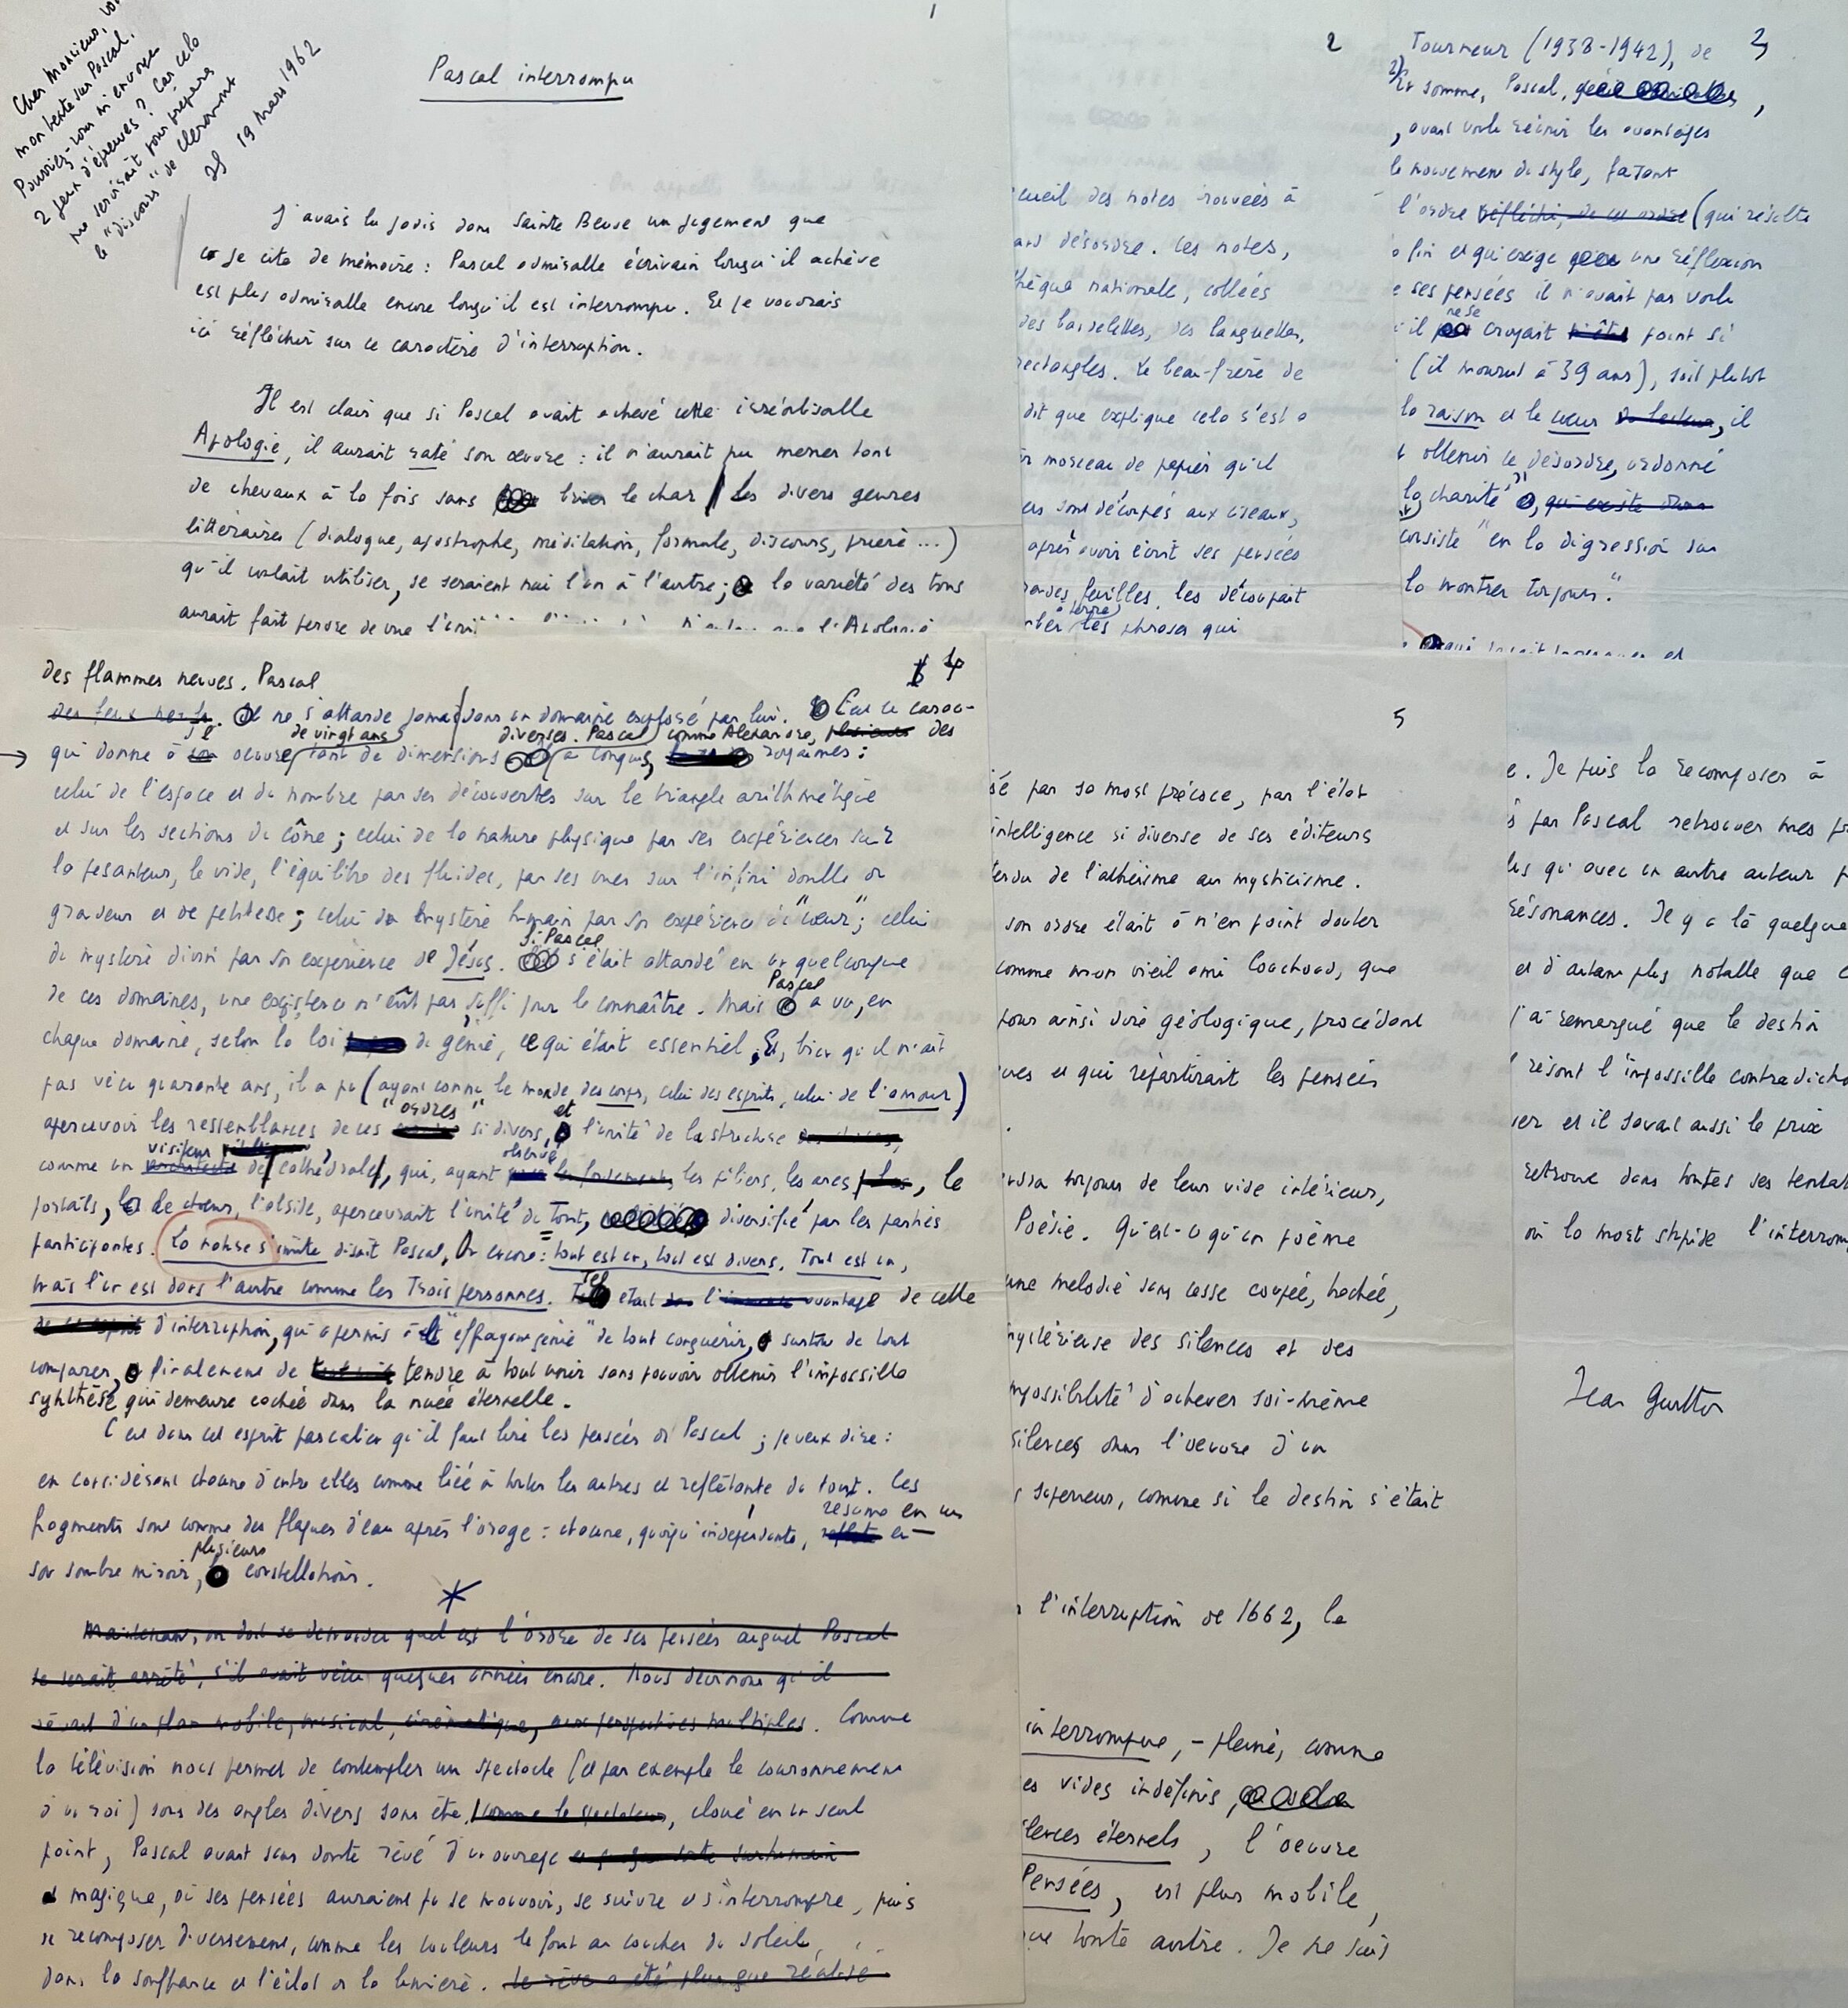 1
Cher Monsieur,
mon texte sur Pascal.
Pourriez-vous m'envoyer
2 jeux d'épreuves ? Car cela
me servirait pour préparer
le "discours" de Clermont
19 mars 1962
Pascal interrompu
J'avais lu jadis dans Sainte Beuve un jugement que
je cite de mémoire : Pascal admirable écrivain lorsqu'il achève
est plus admirable encore lorsqu'il est interrompu. Et je voudrais
ici réfléchir sur ce caractère d'interruption.
Il est clair que si Pascal avait achevé cette irréalisable
Apologie, il aurait raté son œuvre : il n'aurait pu mener tant
de chevaux à la fois sans briser le char / Les divers genres
littéraires (dialogue, apostrophe, méditation, formule, discours, prière ...)
qu'il voulait utiliser, se seraient nui l'un à l'autre ; la variété des tons
aurait fait perdre de vue
2
cueil des notes trouvées à
ans désordre. Ces notes,
thèque nationale, collées
des bandelettes, des languettes,
rectangles. Le beau-frère de
dit que explique cela s'est
morceau de papier qu'il
sont découpés aux ciseaux,
après avoir écrit ses pensées
feuilles, les découpait
à terre
les phrases qui
3
Tourneur (1938-1942), de
En somme, Pascal,
, avait voulu réunir les avantages
le mouvement du style, faisant
l'ordre réfléchi, de cet ordre (qui résulte
fin et qui exige une réflexion
ses pensées il n'avait pas voulu
ne se
il croyait point si
(il mourut à 39 ans), soit plutôt
la raison et le cœur du lecteur, il
obtenir ce désordre, ordonné
la charité", qui existe dans
consiste "en la digression sur
la montrer toujours."
4
des flammes neuves. Pascal
Il ne s'attarde jamais dans un domaine exploré par lui. C'est ce carac-
de vingt ans diverses. Pascal comme Alexandre, plusieurs des
→ qui donne à son oeuvre tant de dimensions a conquis, royaumes :
celui de l'espace et du nombre par ses découvertes sur le triangle arithmétique
et sur les sections du cône ; celui de la nature physique par ses expériences sur
la pesanteur, le vide, l'équilibre des fluides, par ses vues sur l'infini double de
grandeur et de petitesse ; celui du mystère humain par son expérience du "cœur" ; celui
du mystère divin par son expérience de Jésus. Si Pascal s'était attardé en un quelconque
de ces domaines, une existence n'eût pas suffi pour le connaître. Mais Pascal a vu, en
chaque domaine, selon la loi du génie, ce qui était essentiel. Et, bien qu'il n'ait
pas vécu quarante ans, il a pu (ayant connu le monde des corps, celui des esprits, celui de l'amour)
apercevoir les ressemblances de ces "ordres" si divers, et l'unité de la structure
comme un visiteur de cathédrale, qui, ayant observé les fondements, les piliers, les arcs, le
portails, le choeur, l'abside, apercevrait l'unité du Tout, diversifié par les parties
participantes. La nature s'imite disait Pascal, Or encore : tout est un, tout est divers. Tout est un,
mais l'un est dans l'autre comme les Trois personnes. Tel était l' avantage de cette
d'interruption, qui a permis à cet "effrayant génie" de tout conquérir, surtout de tout
comparer, finalement de tendre à tout unir sans pouvoir obtenir l'impossible
synthèse qui demeure cachée dans la nuée éternelle.
C'est dans cet esprit pascalien qu'il faut lire les pensées de Pascal ; je veux dire :
en considérant chacune d'entre elles comme liée à toutes les autres et reflétante du tout. Ces
fragments sont comme des flaques d'eau après l'orage : chacune, quoiqu'indépendante, reflète résume en un
son sombre miroir, plusieurs constellations.
*
Maintenant, on doit se demander quel est l'ordre de ses pensées auquel Pascal
se serait arrêté, s'il avait vécu quelques années encore. Nous devinons qu'il
rêvait d'un plan mobile, musical, cinématique, aux perspectives multiples. Comme
la télévision nous permet de contempler un spectacle (et par exemple le couronnement
d'un roi) sous des angles divers sans être, comme le spectateur, cloué en un seul
point, Pascal avait sans doute rêvé d'un ouvrage en quelque sorte surhumain
magique, où ses pensées auraient pu se mouvoir, se suivre et s'interrompre, puis
se recomposer diversement, comme les couleurs le font au coucher du soleil,
dans la souffrance et l'éclat de la lumière. Le rêve a été plus que réalisé
5
sé par sa mort précoce, par l'état
intelligence si diverse de ses éditeurs
tendu de l'athéisme au mysticisme.
son ordre était à n'en point douter
comme mon vieil ami Couchoud, que
pour ainsi dire géologique, procédant
ques et qui répartirait les pensées
toujours de leur vide intérieur,
Poésie. Qu'est-ce qu'un poème
une mélodie sans cesse coupée, hachée,
mystérieuse des silences et des
mpossibilité d'achever soi-même
silences dans l'oeuvre d'un
supérieur, comme si le destin s'était
l'interruption de 1662, le
interrompue, - pleine, comme
es vides indéfinis,
ilences éternels, l'oeuvre
Pensées, est plus mobile,
que toute autre. Je ne sais
e. Je puis la recomposer à
s par Pascal retrouver mes
lus qu'avec un autre auteur
résonances. Il y a là quelque
et d'autant plus notable que
j'ai remarqué que le destin
résout l'impossible contradic
ver et il savait aussi le prix
retrouve dans toutes ses tentat
où la mort stupide l'interrom
Jean Guitton